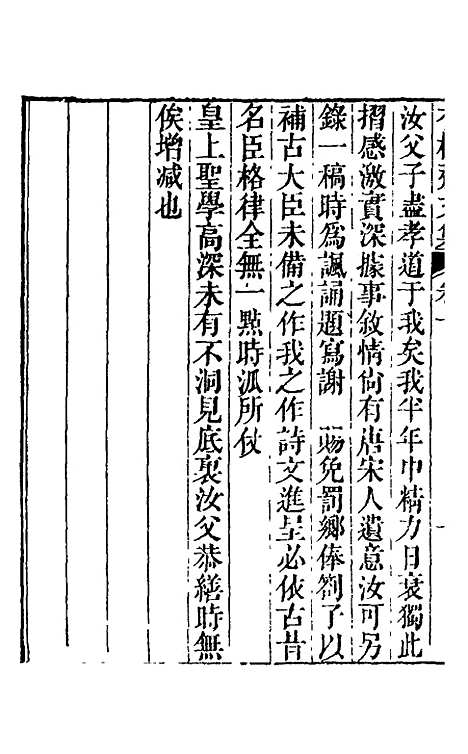 汝父子盡孝道于我矣我半年中精力日衰獨此
摺感激實深據事敘情尙有唐宋人遺意汝可另
錄一稿時爲諷誦題寫謝　賜免罰鄉俸劄了以
補古大臣未備之作我之作詩文進呈必依古昔
名臣格律全無一點時派所仗
皇上聖學高深未有不洞見底裏汝父恭繕時無
俟增減也